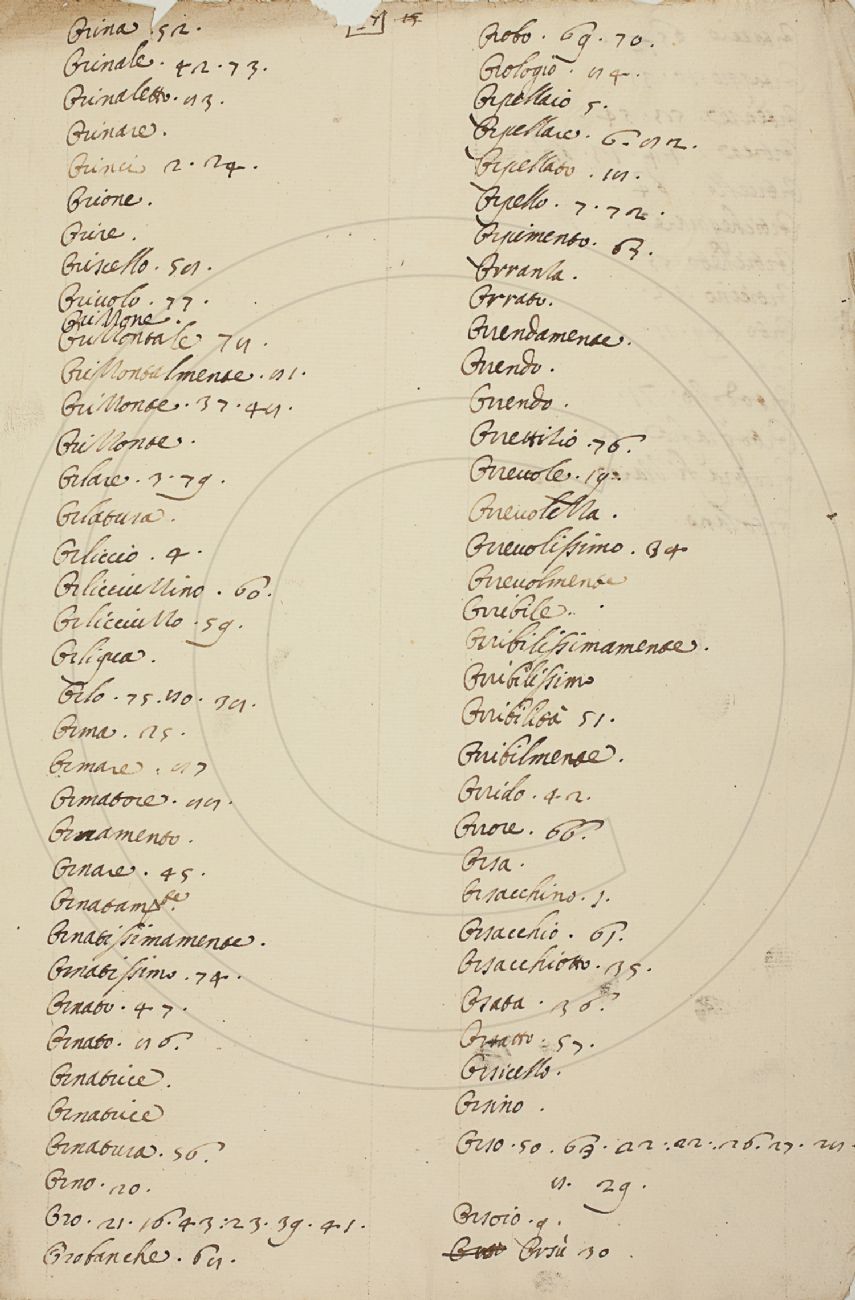 Orina 52.
Orinale . 42 . 73 .
Orinaletto . 83 .
Orinare .
Orinci 2 . 24 .
Orione .
Orire .
Oriscello . 58 .
Oriuolo . 77 .
Orizzone .
Orizzontale 78 .
Orizzontalmente . 81 .
Orizzonte . 37 . 48 .
Orizzonte .
Orlare . 3 . 79 .
Orlatura .
Orliccio . 4 .
Orlicciuzzino . 60 .
Orlicciuzzo . 59 .
Orliqua .
Orlo . 75 . 80 . 38 .
Orma . 25 .
Ormare . 87
Ormatore . 88 .
Ornamento .
Ornare . 45 .
Ornatamte.
Ornatissimamente .
Ornatissimo . 74 .
Ornato . 47 .
Ornato . 86 .
Ornatrice .
Ornatrice
Ornatura . 56 .
Orno . 20 .
Oro . 21 . 16 . 43 : 23 . 39 . 41 .
Orobanche . 68 .
Orobo . 69 . 70 .
Orologio . 84 .
Orpellaio 5 .
Orpellare . 6 . 82 .
Orpellato . 18 .
Orpello . 7 . 72 .
Orpimento . 63 .
Orranza .
Orrato .
Orrendamente .
Orrendo .
Orrendo .
Orrettizio . 76 .
Orrevole . 19 .
Orrevolezza .
Orrevolissimo . 34
Orrevolmente
Orribile .
Orribilissimamente .
Orribilissimo
Orribilità 51 .
Orribilmente .
Orrido . 42 .
Orrore . 66 .
Orsa .
Orsacchino . 1 .
Orsacchio . 61 .
Orsacchiotto . 35 .
Orsata . 36 .
Orsatto . 57 .
Orsicello .
Orsino .
Orso . 50 . 63 . 22 : 22 : 26 . 27 . 28 .
8 . 29 .
Orsoio . 9 .
Orsù 30